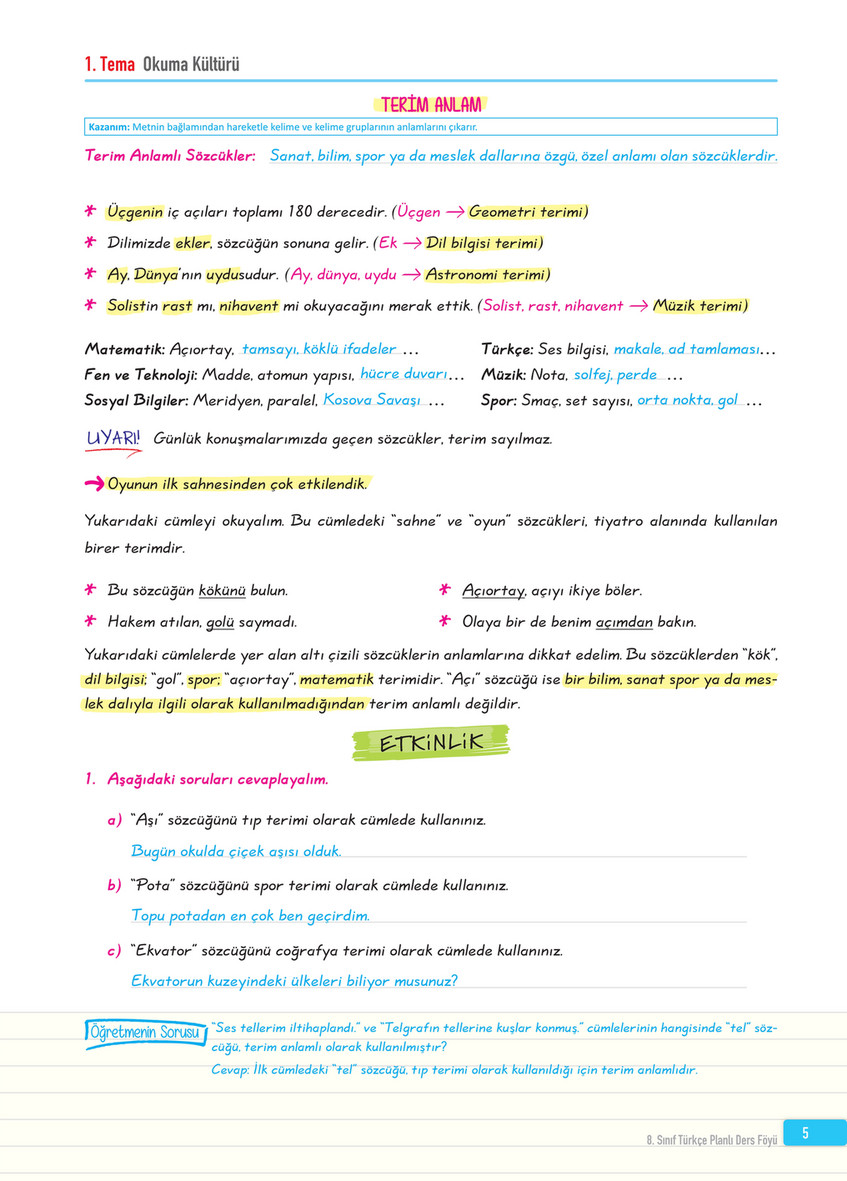 1. Tema Okuma Kültürü
TERİM ANLAM
Kazanım: Metnin bağlamından hareketle kelime ve kelime gruplarının anlamlarını çıkarır.
Terim Anlamlı Sözcükler: Sanat, bilim, spor ya da meslek dallarına özgü, özel anlamı olan sözcüklerdir.
* Üçgenin iç açıları toplamı 180 derecedir. (Üçgen → Geometri terimi)
* Dilimizde ekler, sözcüğün sonuna gelir. (Ek → Dil bilgisi terimi)
* Ay, Dünya'nın uydusudur. (Ay, dünya, uydu → Astronomi terimi)
* Solistin rast mı, nihavent mi okuyacağını merak ettik. (Solist, rast, nihavent → Müzik terimi)
Matematik: Açıortay, tamsayı, köklü ifadeler ...
Fen ve Teknoloji: Madde, atomun yapısı, hücre duvarı...
Sosyal Bilgiler: Meridyen, paralel, Kosova Savaşı ...
Türkçe: Ses bilgisi, makale, ad tamlaması...
Müzik: Nota, solfej, perde ...
Spor: Smaç, set sayısı, orta nokta, gol ...
UYARI! Günlük konuşmalarımızda geçen sözcükler, terim sayılmaz.
→ Oyunun ilk sahnesinden çok etkilendik.
Yukarıdaki cümleyi okuyalım. Bu cümledeki "sahne" ve "oyun" sözcükleri, tiyatro alanında kullanılan
birer terimdir.
* Bu sözcüğün kökünü bulun.
* Hakem atılan, golü saymadı.
* Açıortay, açıyı ikiye böler.
* Olaya bir de benim açımdan bakın.
Yukarıdaki cümlelerde yer alan altı çizili sözcüklerin anlamlarına dikkat edelim. Bu sözcüklerden "kök",
dil bilgisi; "gol", spor; "açıortay", matematik terimidir. "Açı" sözcüğü ise bir bilim, sanat spor ya da mes-
lek dalıyla ilgili olarak kullanılmadığından terim anlamlı değildir.
ETKİNLİK
1. Aşağıdaki soruları cevaplayalım.
a) "Aşı" sözcüğünü tıp terimi olarak cümlede kullanınız.
Bugün okulda çiçek aşısı olduk.
b) "Pota" sözcüğünü spor terimi olarak cümlede kullanınız.
Topu potadan en çok ben geçirdim.
c) "Ekvator" sözcüğünü coğrafya terimi olarak cümlede kullanınız.
Ekvatorun kuzeyindeki ülkeleri biliyor musunuz?
Öğretmenin Sorusu
"Ses tellerim iltihaplandı." ve "Telgrafın tellerine kuşlar konmuş." cümlelerinin hangisinde "tel" söz-
cüğü, terim anlamlı olarak kullanılmıştır?
Cevap: İlk cümledeki "tel" sözcüğü, tıp terimi olarak kullanıldığı için terim anlamlıdır.
8. Sınıf Türkçe Planlı Ders Föyü
5